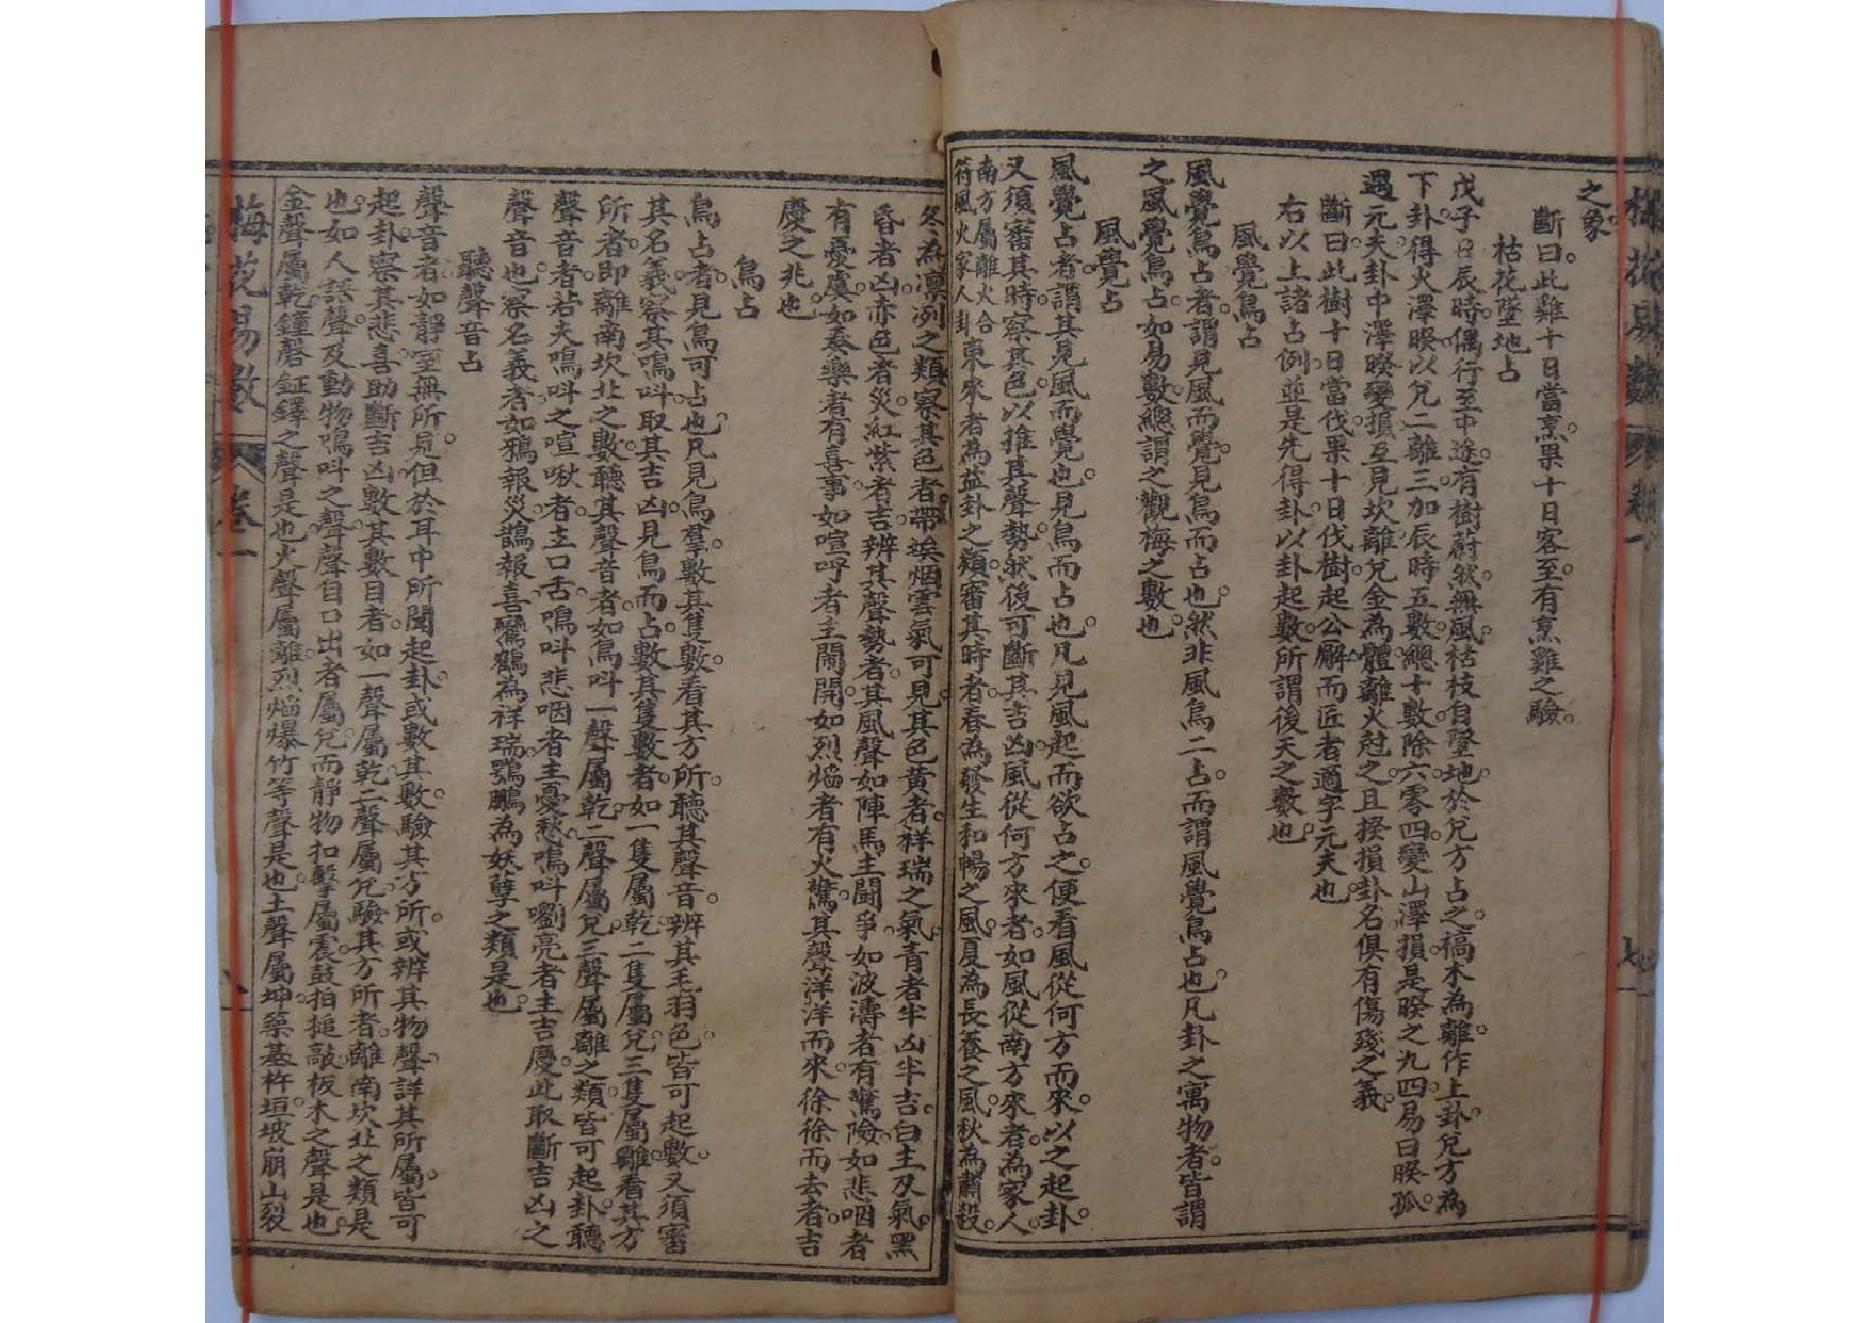 之象
斷曰此雞十日當烹果十日客至有烹雞之驗
枯花墜地占
戊子日辰時偶行至中途有樹蔚然無風枯枝自墜地於兌方占之槁木為離作上卦兌方為
下卦得火澤睽以兌二離三加辰時五數總十數除六零四變山澤損是睽之九四易曰睽孤
遇元夫卦中澤睽變損互見坎離兌金為體離火尅之且揆損卦名俱有傷殘之義
斷曰此樹十日當伐果十日伐樹起公廨而匠者適字元夫也
右以上諸占例並是先得卦以卦起數所謂後天之數也
風覺鳥占
風覺鳥占者謂見風而覺見鳥而占也然非風鳥二占而謂風覺鳥占也凡卦之寓物者皆謂
之風覺鳥占如易數總謂之觀梅之數也
風覺占
風覺占者謂其見風而覺也見鳥而占也凡見風起而欲占之便看風從何方而來以之起卦
又須審其時察其色以推其聲勢然後可斷其吉凶風從何方來者如風從南方來者為家人
南方屬離火合
符風火家人卦
東來者為益卦之類審其時者春為發生和暢之風夏為長養之風秋為肅殺
冬為凜冽之類察其色者帶埃烟雲氣可見其色黃者祥瑞之氣青者半凶半吉白主刄氣黑
昏者凶亦色者災紅紫者吉辨其聲勢者其風聲如陣馬主鬪爭如波濤者有驚險如悲咽者
有憂虞如奏樂者有喜事如喧呼者主鬧開如烈焰者有火驚其聲洋洋而來徐徐而去者吉
慶之兆也
鳥占
鳥占者見鳥可占也凡見鳥羣數其隻數看其方所聽其聲音辨其毛羽色皆可起數又須審
其名義察其鳴呌取其吉凶見鳥而占數其隻數者如一隻屬乾二隻屬兌三隻屬離看其方
所者即離南坎北之數聽其聲音者如鳥呌一聲屬乾二聲屬兌三聲屬離之類皆可起卦聽
聲音者若夫鳴呌之喧啾者主口舌鳴呌悲咽者主憂愁鳴呌嚠亮者主吉慶此取斷吉凶之
聲音也察名義者如鴉報災鵲報喜鸞鶴為祥瑞鶚鵬為妖孽之類是也
聽聲音占
聲音者如靜室無所見但於耳中所聞起卦或數其數驗其方所或辨其物聲詳其所屬皆可
起卦察其悲喜助斷吉凶數其數目者如一聲屬乾二聲屬兌驗其方所者離南坎北之類是
也如人語聲及動物鳴呌之聲聲自口出者屬兌而靜物扣擊屬震鼓拍搥敲板木之聲是也
金聲屬乾鐘磬鉦鐸之聲是也火聲屬離烈焰爆竹等聲是也土聲屬坤築基杵垣坡崩山裂
梅花易數
卷一
八